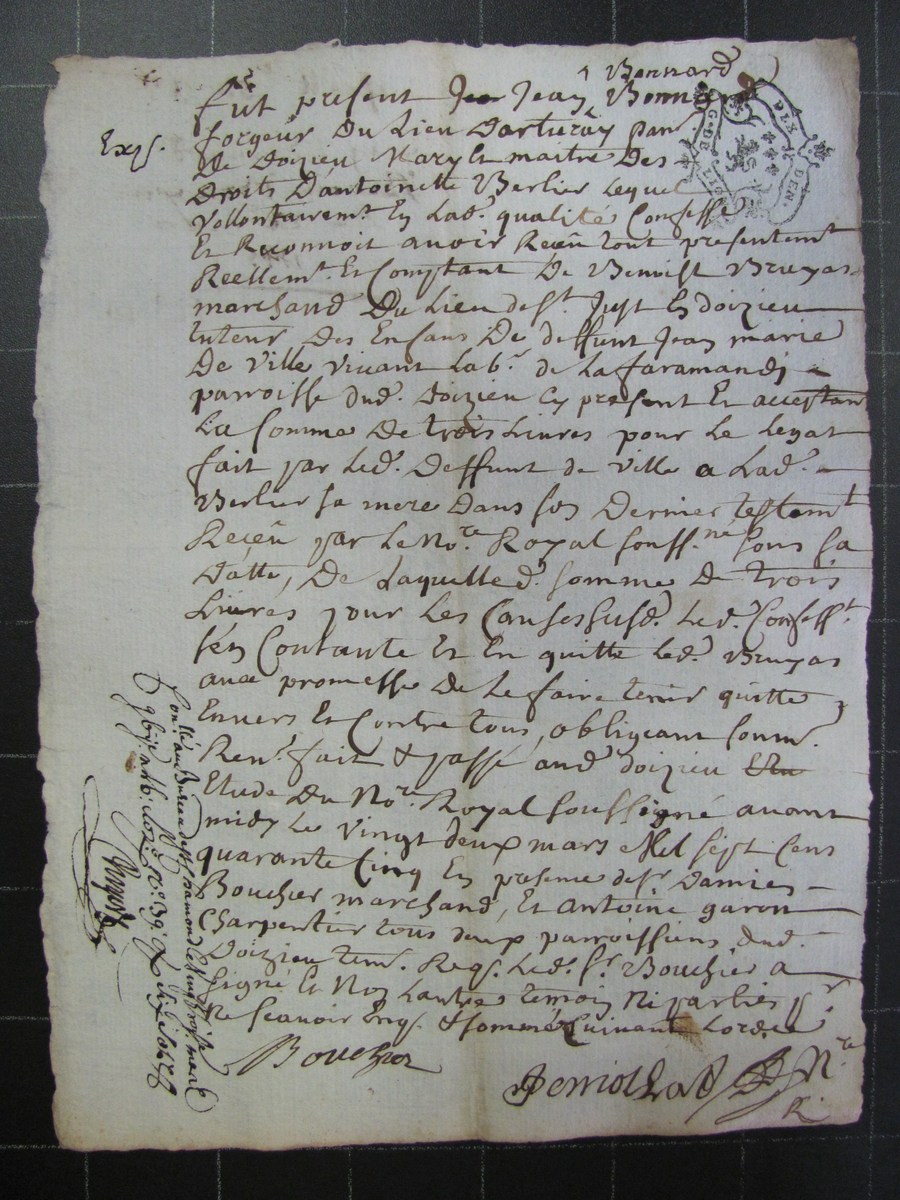 Bonnard
Fut present Jean Bonnard
Exp.
forgeur Du Lieu Darturay parr.
De doizieu Mary Et maitre Des
Droits Dantoinette Berlier Lequel
Vollontairemt. En Lad. qualité Confesse
Et Reconnoit avoir Receu tout presentemt
Reellemt. Et Comptant De Benoist Bruyas
marchand Du Lieu de St. Just En doizieu
tuteur Des Enfans De deffunt Jean marie
De ville vivant Labr. de La faramandj
parroisse dud. doizieu Cy present Et acceptant
La somme De trois Livres pour Le Legat
fait par Led. Deffunt de ville a Lad.
Berlier sa mere Dans son Dernier testamt
Receu par Le Nore. Royal souss.né sous sa
Datte, De Laquelle d. somme De trois
Livres pour Les Causes susd. Led. Confesst.
sen Contante Et En quitte Led. Bruyas
avec promesse De Le faire tenir quitte
Envers Et Contre tous, obligeant soumr.
Renr. fait & passé aud. doizieu
Etude Du Nore. Royal soussigné avant
midy Le vingt deux mars Mil sept Cens
quarante Cinq En presence de sr. Damien
Bouchier marchand, Et Antoine garon
Charpentier tous deux parroissiens dud.
Doizieu tem. Reqs. Led. sr. Bouchier a
signé Et Non Lautre temoin Ni parties pr.
Ne scavoir Enqs. & sommé suivant Lordce
Bouchier
Conllé. au Bureau de St. chamond le vingt trois mars
DEN.
G. DE